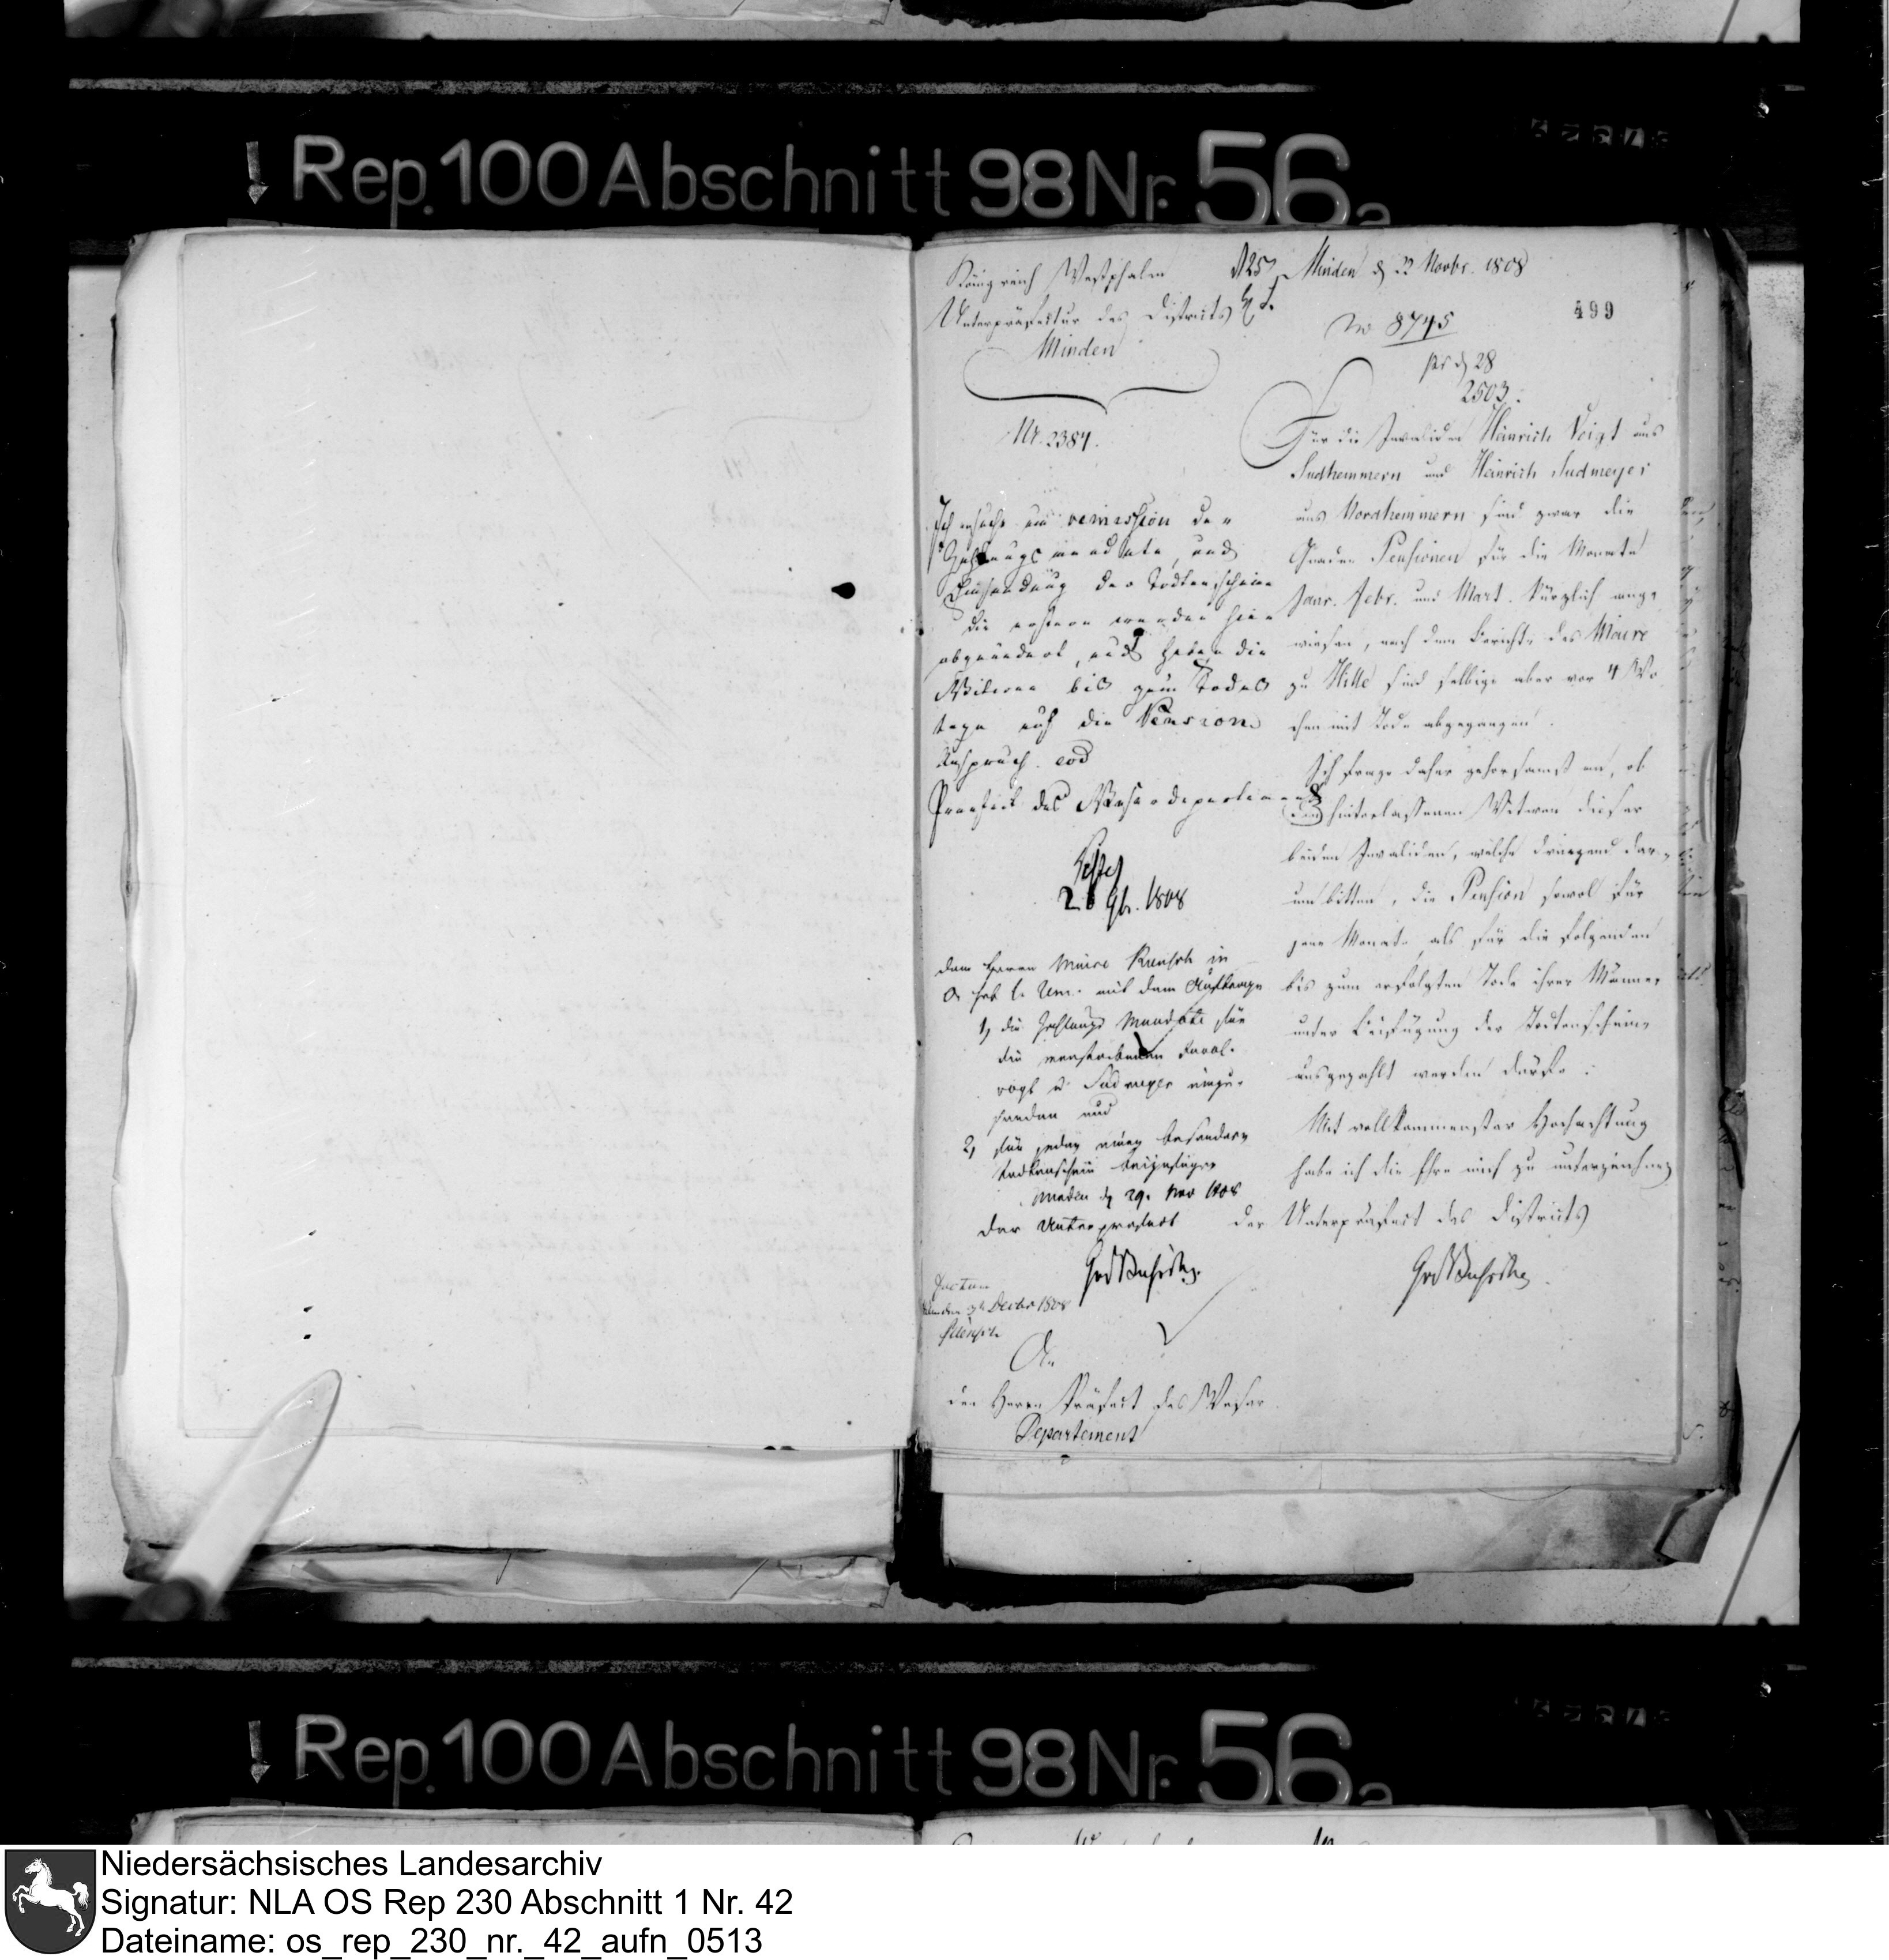 Rep. 100 Abschnitt 98 Nr. 56a
Königreich Westphalen
Unterpräfectur des Districts
Minden
Nr. 2384.
Minden d 22 Novbr. 1808
499
No 8745
pr d 28
2503.
Für die Invaliden Heinrich Voigt aus
Sudhemmern und Heinrich Sudmeyer
aus Nordhemmern sind zwar die
Gnaden Pensionen für die Monate
Janr. Febr. und Mart. kürzlich ange
wiesen, nach dem Berichte des Maire
zu Hille sind selbige aber vor 4 Wo
chen mit Tode abgegangen.
Ich frage daher gehorsamst an, ob
den hinterlassenen Witwen dieser
beiden Invaliden, welche dringend dar
um bitten, die Pension sowol für
jene Monate als für die folgenden
bis zum erfolgten Tode ihrer Männer
unter Beifügung der Todtenscheine
ausgezahlt werden dürfe.
Mit vollkommenster Hochachtung
habe ich die Ehre mich zu unterzeichnen
Der Unterpräfect des Districts
Ich ersuche um remission der
Zahlungsmandate, und
Einsendung der Todtenscheine
die erstern werden hier
abgeändert, und haben die
Witwen bis zum Todes
tage auf die Pension
Anspruch. eod
Praefect des Weserdepartements
26 9br. 1808
dem Herrn Maire in
mit dem Auftrage
1, die Zahlungs Mandate für
die verstorbenen Invol.
vogt u. Sudmeyer einzu-
senden und
2, für jeden einen besondern
Todtenschein beizufügen
Minden d 29. Nov 1808
Der Unterpräfect
Minden Decbr 1808
An
den Herrn Präfect des Weser
Departement
Rep. 100 Abschnitt 98 Nr. 56a
Niedersächsisches Landesarchiv
Signatur: NLA OS Rep 230 Abschnitt 1 Nr. 42
Dateiname: os_rep_230_nr._42_aufn_0513